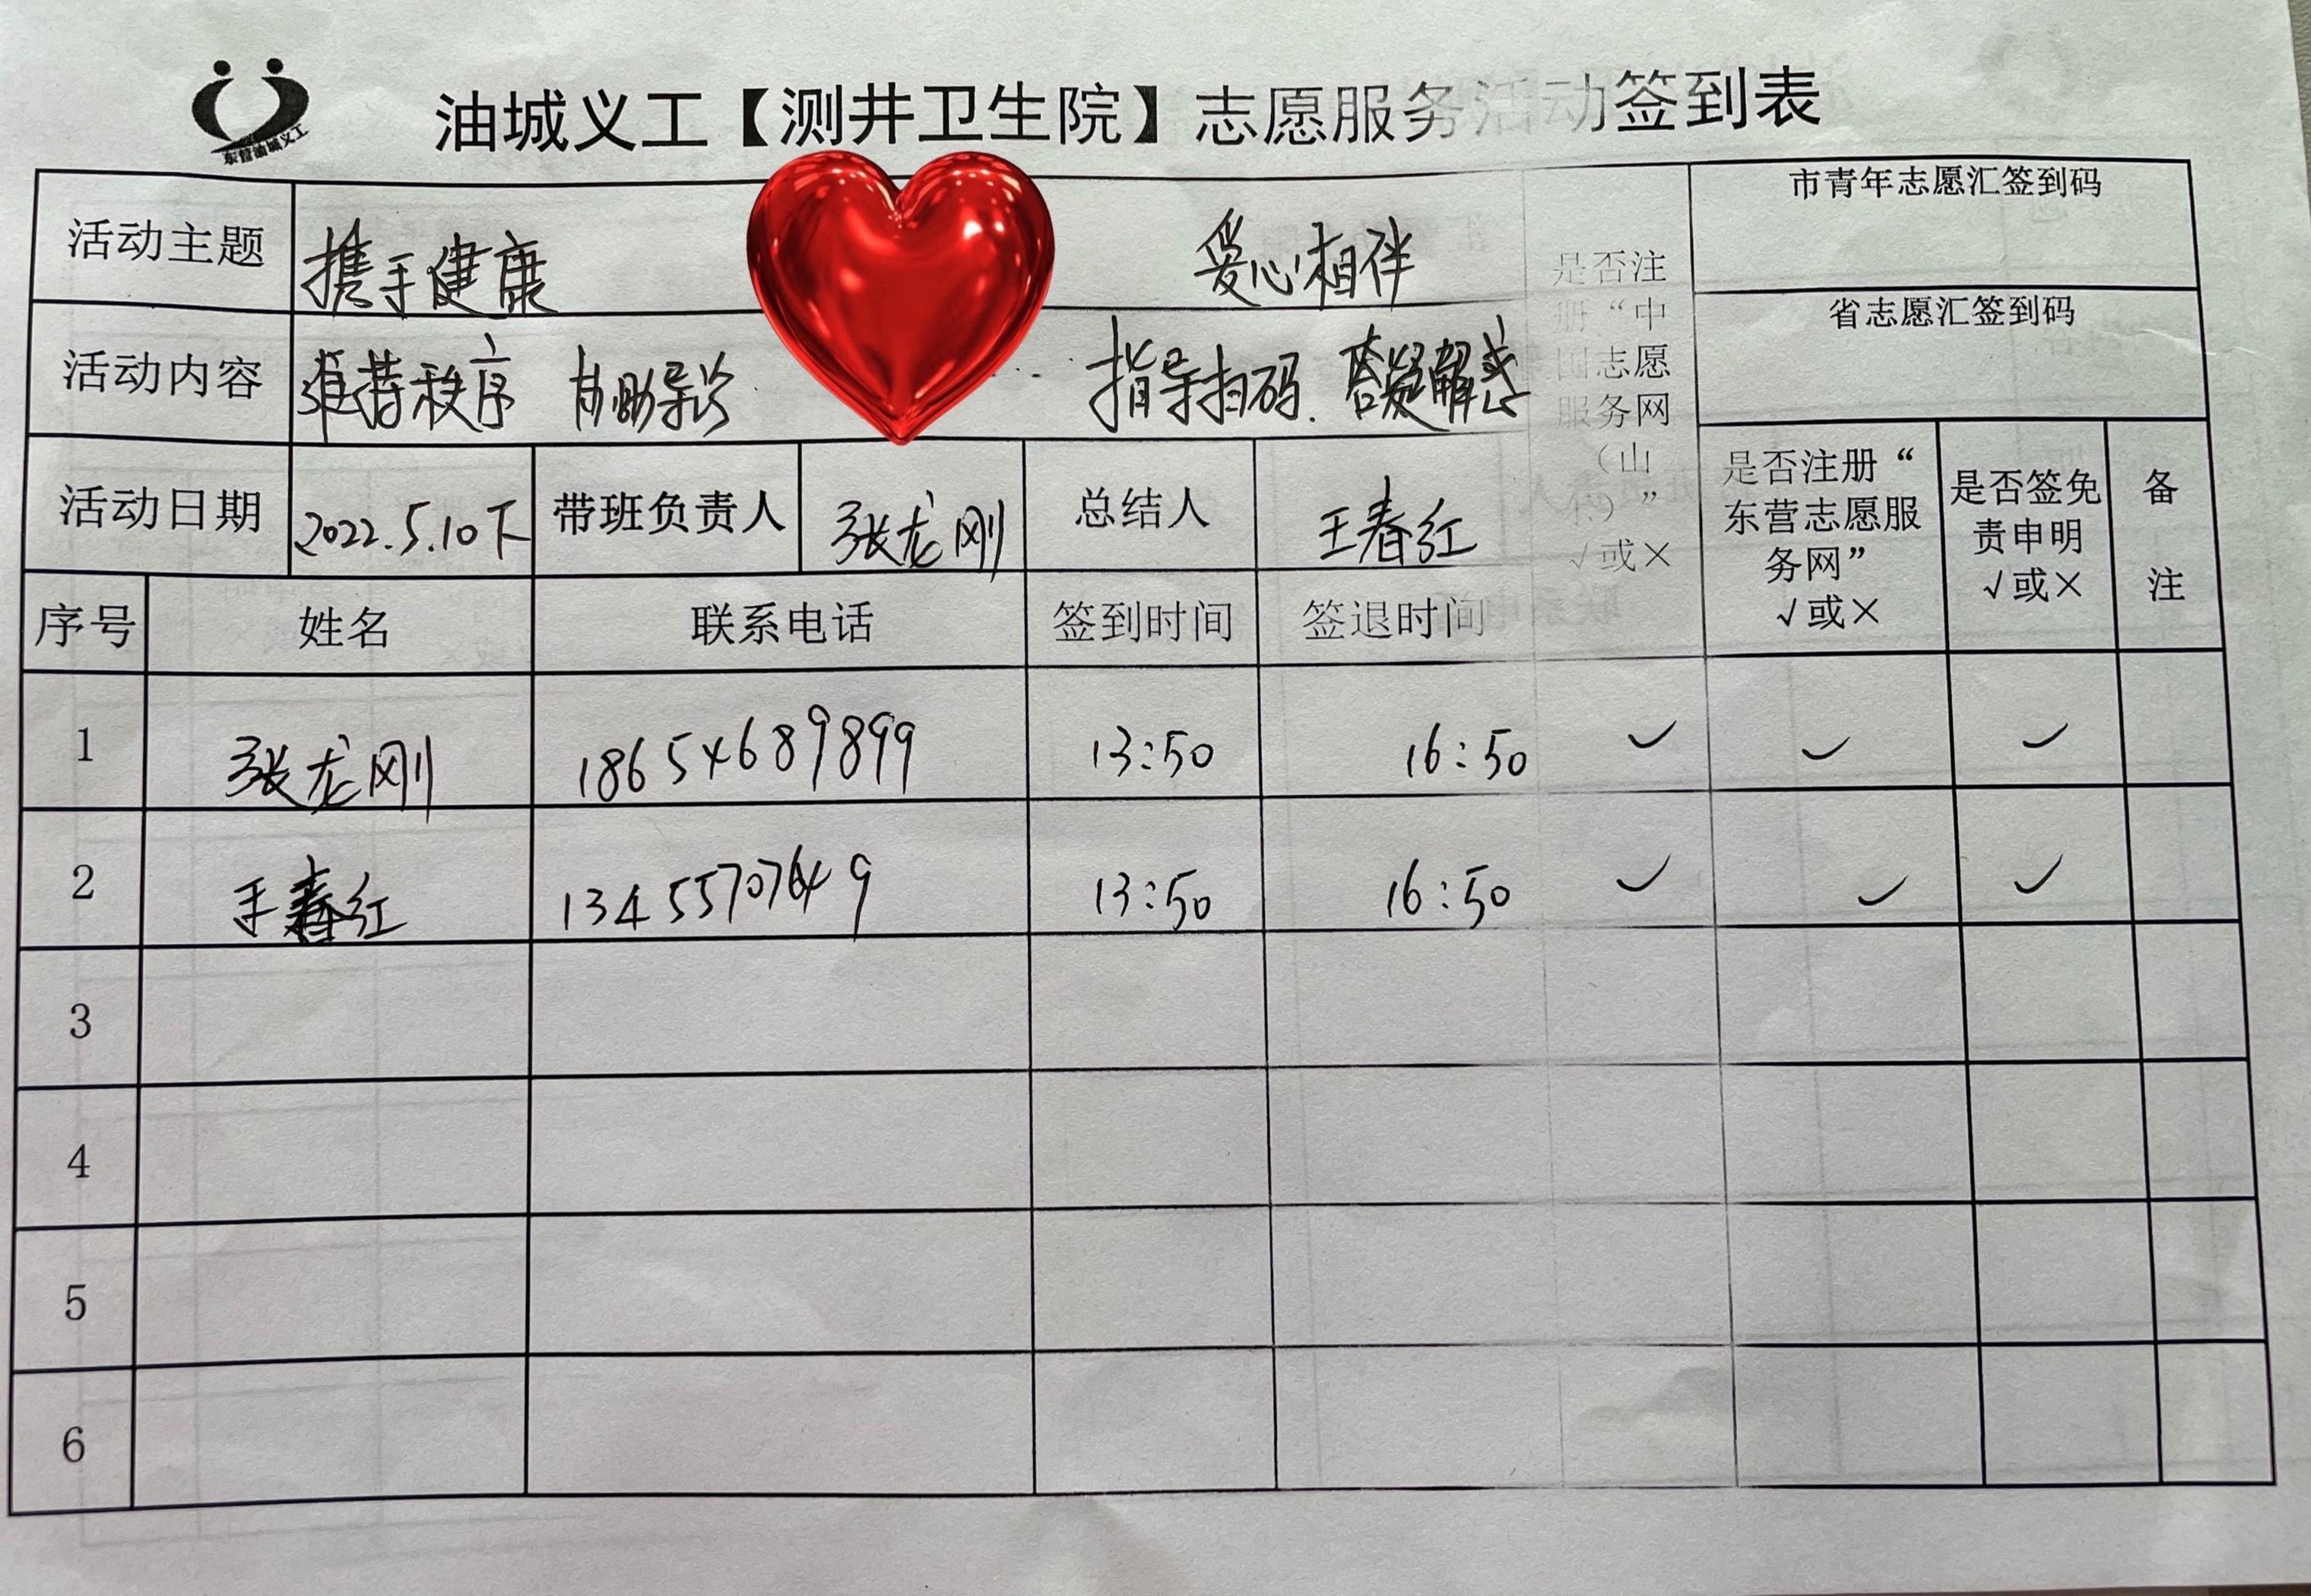 东营油城义工
油城义工【测井卫生院】志愿服务活动签到表
活动主题 携手健康 爱心相伴
市青年志愿汇签到码
活动内容 维持秩序 自助导诊 指导扫码.答疑解惑
省志愿汇签到码
活动日期 2022.5.10下 带班负责人 张龙刚 总结人 王春红
是否注
册“中
国志愿
服务网
(山
东)”
√或×
是否注册“
东营志愿服
务网”
√或×
是否签免
责申明
√或×
备
注
序号 姓名 联系电话 签到时间 签退时间
1 张龙刚 18654689899 13:50 16:50 ✓ ✓ ✓
2 王春红 13455707649 13:50 16:50 ✓ ✓ ✓
3
4
5
6